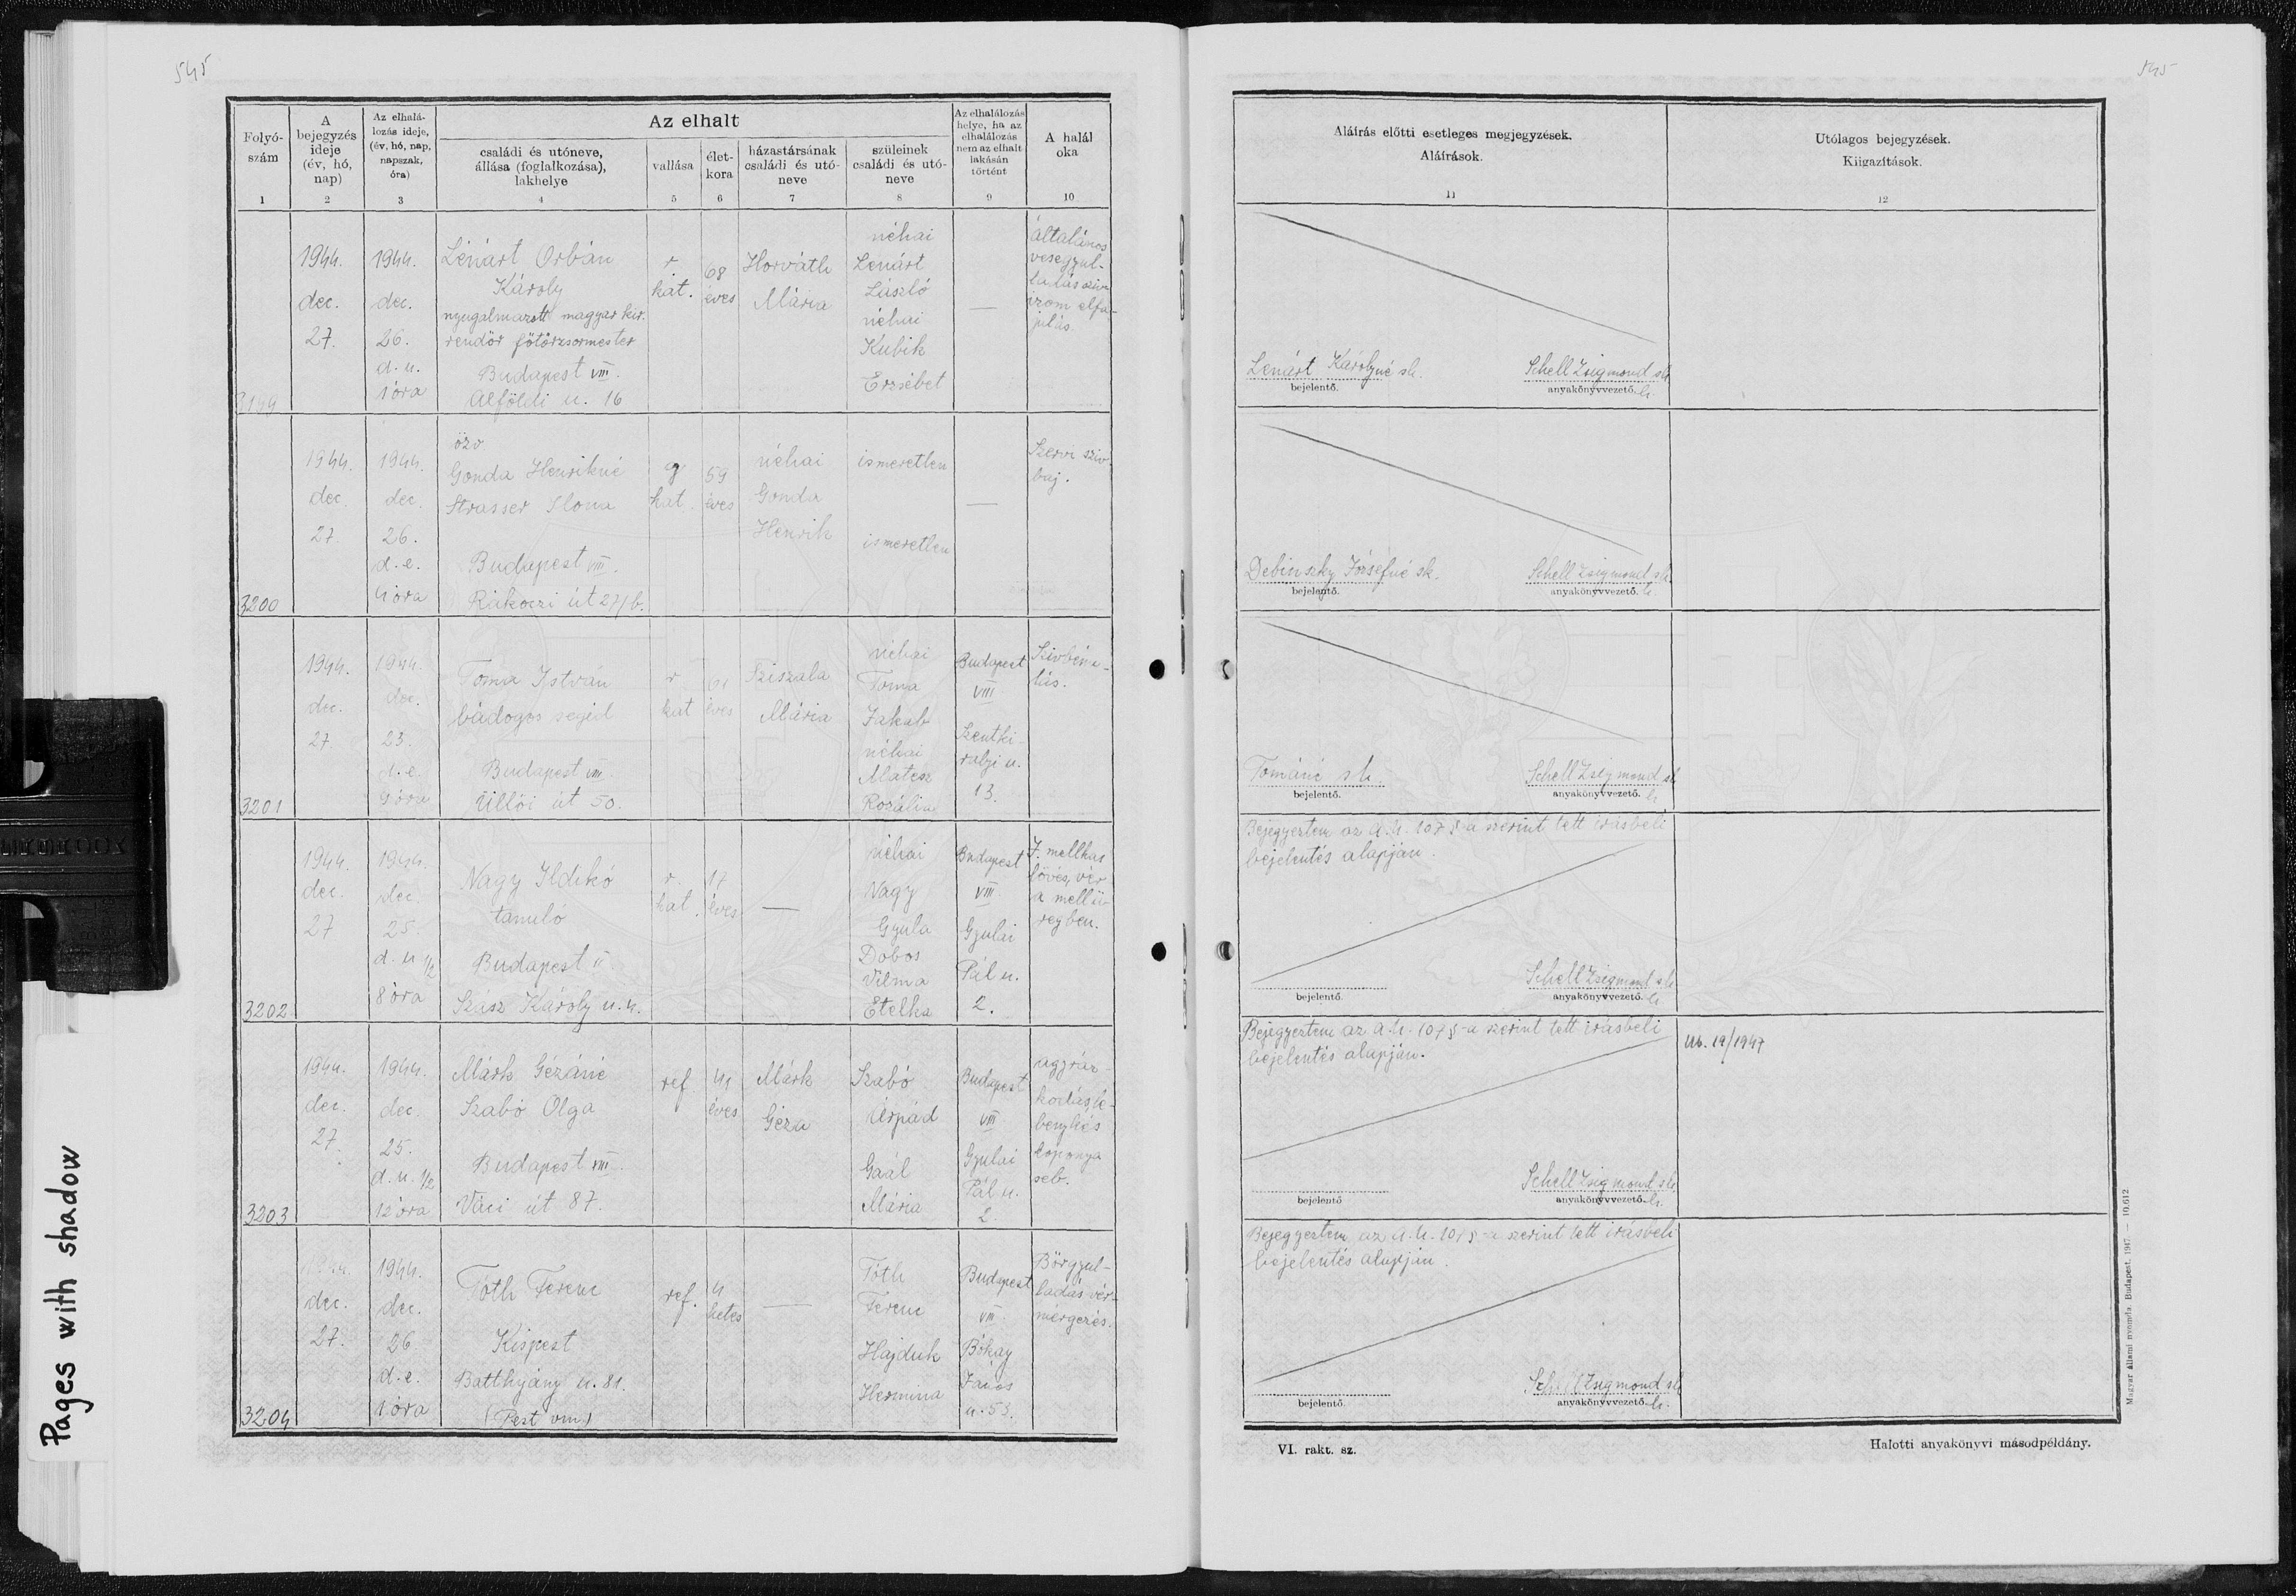 545
545
Pages with shadow
Folyó-
szám
1
A
bejegyzés
ideje
(év, hó,
nap)
2
Az elhalá-
lozás ideje,
(év, hó, nap,
napszak,
óra)
3
Az elhalt
családi és utóneve,
állása (foglalkozása),
lakhelye
4
vallása
5
élet-
kora
6
házastársának
családi és utó-
neve
7
szüleinek
családi és utó-
neve
8
Az elhalálozás
helye, ha az
elhalálozás
nem az elhalt
lakásán
történt
9
A halál
oka
10
Aláírás előtti esetleges megjegyzések.
Aláírások.
11
Utólagos bejegyzések.
Kiigazítások.
12
3199
1944.
dec.
27.
1944.
dec.
26.
d. u.
1 óra
Lénárt Orbán
Károly
nyugalmazott magyar kir.
rendőr főtörzsőrmester
Budapest VIII.
Alföldi u. 16
r.
kat.
68
éves
Horváth
Mária
néhai
Lenárt
László
néhai
Kubik
Erzsébet
—
általános
vesegyul-
ladás sziv
izom elfa-
julás.
Lenárt Károlyné sk.
bejelentő.
Schell Zsigmond sk
anyakönyvvezető. h.
3200
1944.
dec.
27.
1944.
dec.
26.
d. e.
4 óra
özv.
Gonda Henrikné
Strasser Ilona
Budapest VIII.
Rákóczi út 27/b.
g
kat.
59
éves
néhai
Gonda
Henrik
ismeretlen
ismeretlen
—
Szervi sziv
baj.
Debinszky Józsefné sk.
bejelentő.
Schell Zsigmond sk
anyakönyvvezető. h.
3201
1944.
dec.
27
1944.
dec.
23.
d. e.
9 óra
Toma István
bádogos segéd
Budapest VIII.
Üllői út 50.
r
kat
61
éves
Sziszala
Mária
néhai
Toma
Jakab
néhai
Matesz
Rozália
Budapest
VIII
Szentki-
rályi u.
13.
Szivbénu-
lás.
Tománé sk.
bejelentő.
Schell Zsigmond sk
anyakönyvvezető. h.
3202
1944.
dec.
27
1944.
dec.
25.
d. u ½
8 óra
Nagy Ildikó
tanuló
Budapest II
Szász Károly u. 4.
r.
kat.
17
éves
—
néhai
Nagy
Gyula
Dobos
Vilma
Etelka
Budapest
VIII.
Gyulai
Pál u.
2.
J. mellkas
lövés, vér
a mellü-
regben.
Bejegyeztem az A. u. 107 §-a szerint tett irásbeli
bejelentés alapján.
bejelentő.
Schell Zsigmond sk
anyakönyvvezető. h.
3203
1944.
dec.
27.
1944.
dec.
25.
d. u. ½
12 óra
Márk Gézáné
Szabó Olga
Budapest VIII.
Váci út 87.
ref
41
éves
Márk
Géza
Szabó
Árpád
Gaál
Mária
Budapest
VIII
Gyulai
Pál u.
2.
agyráz-
kodás, le-
benyhés
koponya
seb.
Bejegyeztem az A. u. 107 §-a szerint tett irásbeli
bejelentés alapján.
bejelentő
Schell Zsigmond sk
anyakönyvvezető. h.
Ub. 19/1947
3204
1944.
dec.
27.
1944.
dec.
26
d. e.
1 óra
Tóth Ferenc
Kispest
Batthyány u. 81.
(Pest vm.)
ref.
4
hetes
—
Tóth
Ferenc
Hajduk
Hermina
Budapest
VIII.
Bókay
János
u. 53.
Bőrgyul-
ladás vér-
mérgezés.
Bejegyeztem az A. u. 107 §-a szerint tett irásbeli
bejelentés alapján.
bejelentő.
Schell Zsigmond sk
anyakönyvvezető. h.
VI. rakt. sz.
Halotti anyakönyvi másodpéldány.
Magyar Állami nyomda. Budapest. 1947. — 10.612